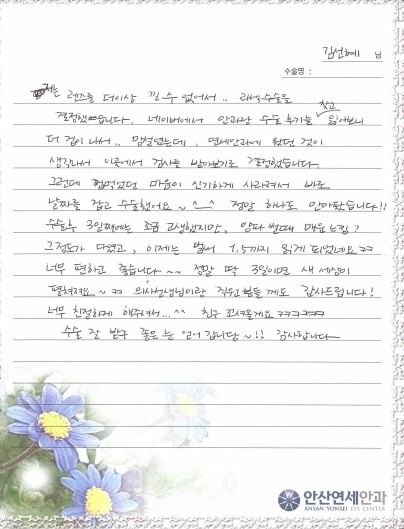 김선혜 님
수술명 :
저는 렌즈를 더이상 낄 수 없어서.. 라섹수술을
결정했습니다. 네이버에서 안과랑 수술 후기를 찾고 읽어보니
더 겁이 나서.. 망설였는데, 연세안과에 왔던 것이
생각나서 이곳에서 검사를 받아보기로 결정했습니다.
그런데 망설였던 마음이 신기하게 사라져서 바로
날짜를 잡고 수술했어요~ ^_^ 정말 하나도 안아팠습니다!!
수술후 3일째에는 조금 고생했지만, 양파 썰때 매운느낌?
그정도가 다였고, 이제는 벌써 1.5까지 읽게 되었네요ㅋㅋ
너무 편하고 좋습니다~~ 정말 딱 3일이면 새 세상이
펼쳐져요~ㅋ 의사선생님이랑 직원분들께도 감사드립니다!
너무 친절하게 해주셔서...^^ 친구 꼬셔올게요 ㅋㅋㅋㅋㅋ
수술 잘 받구 좋은 눈 얻어 갑니다~!! 감사합니다
안산연세안과
ANSAN YONSEI EYE CENTER